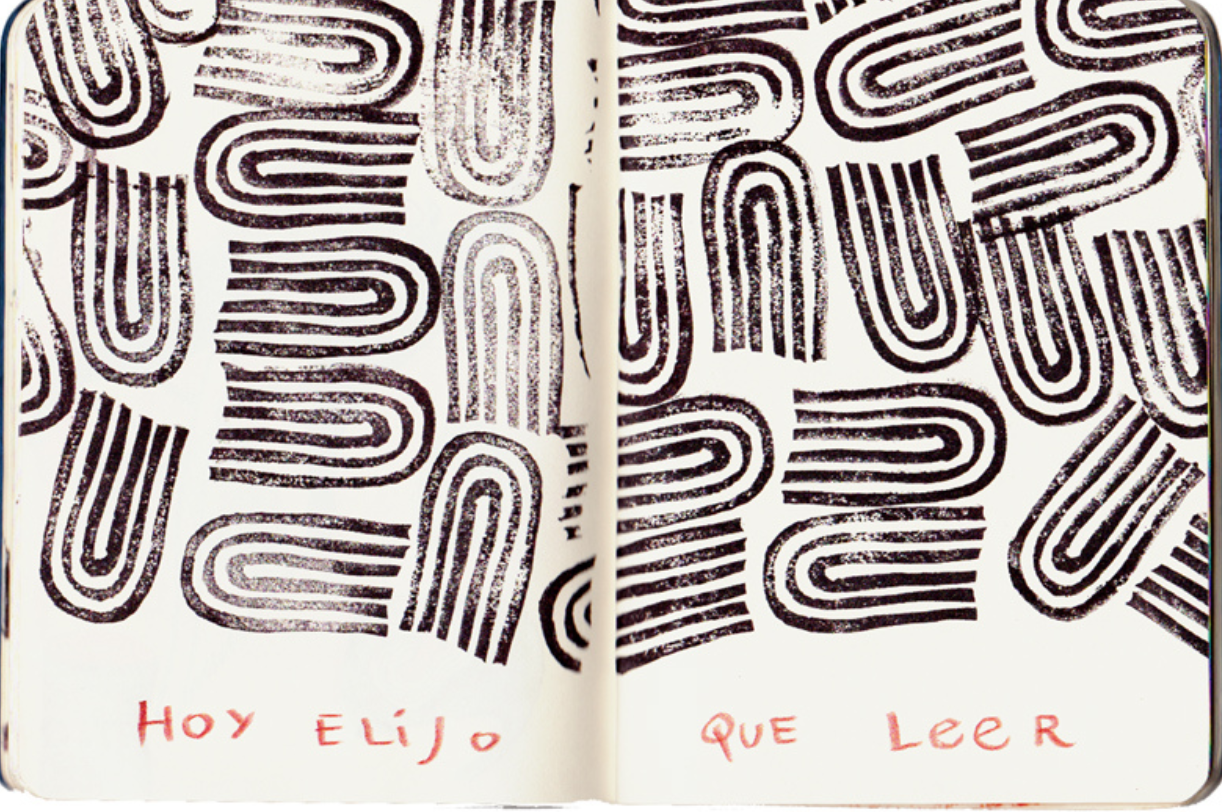 HOY ELíJO QUE LeeR